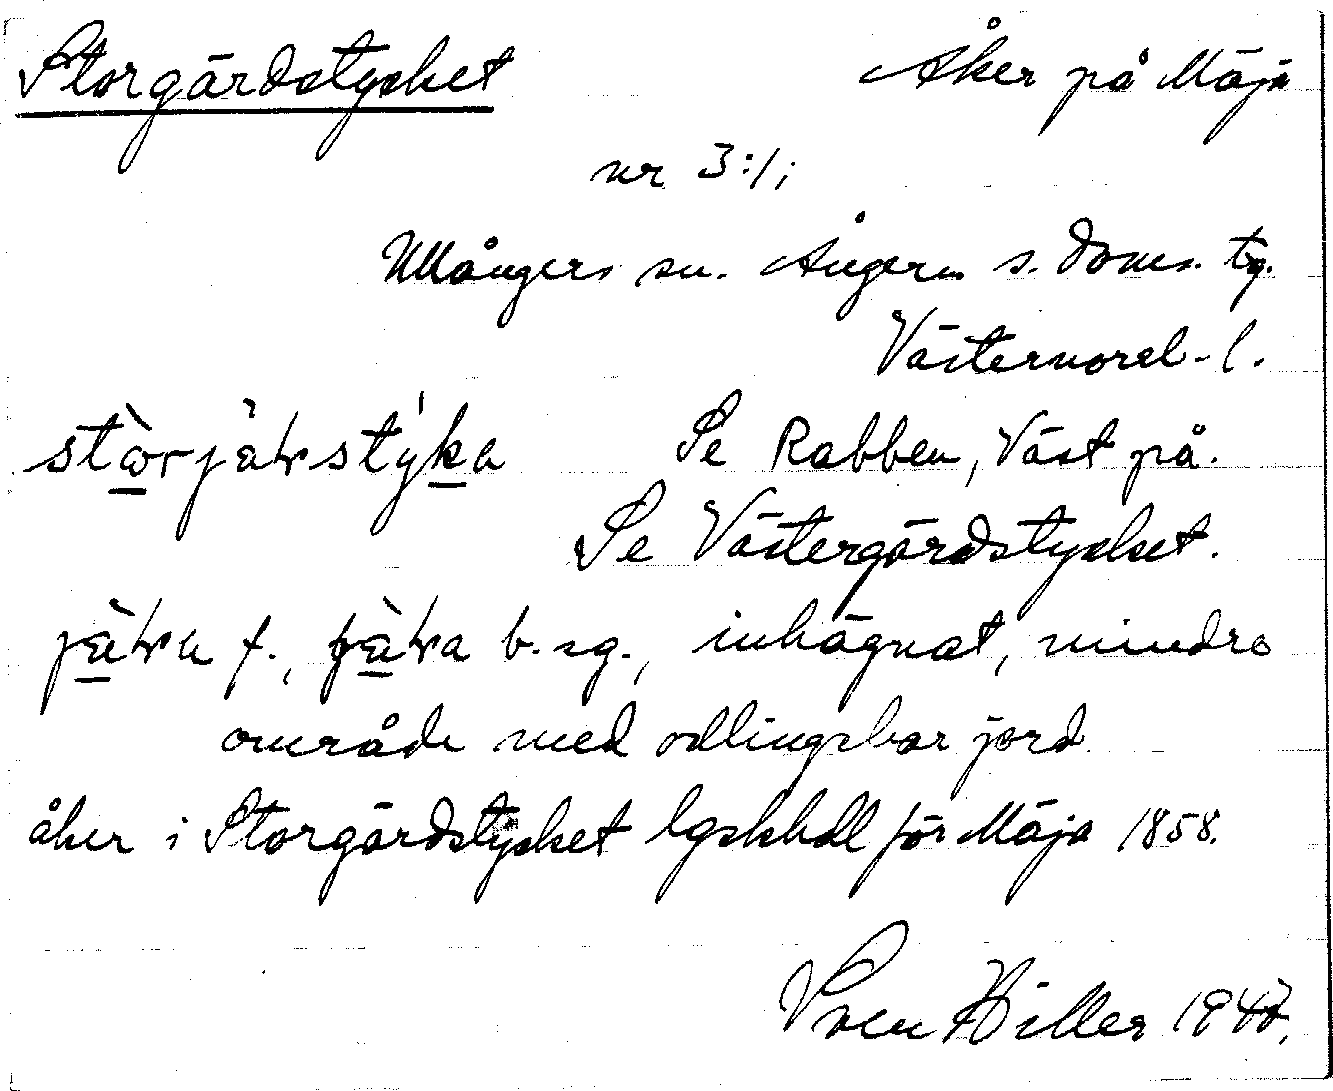 Storgärdstycket Åker på Mäja
nr 3:1;
Ullångers sn. Ångerm. s. doms. tg.
Västernorrl. l.
Se Rabben, Väst på.
Se Västergärdstycket.
f., b. sg., inhägnat, mindre
område med odlingsbar jord
åker i Storgärdstycket lgskhdl för Mäja 1858.
Sven Hiller